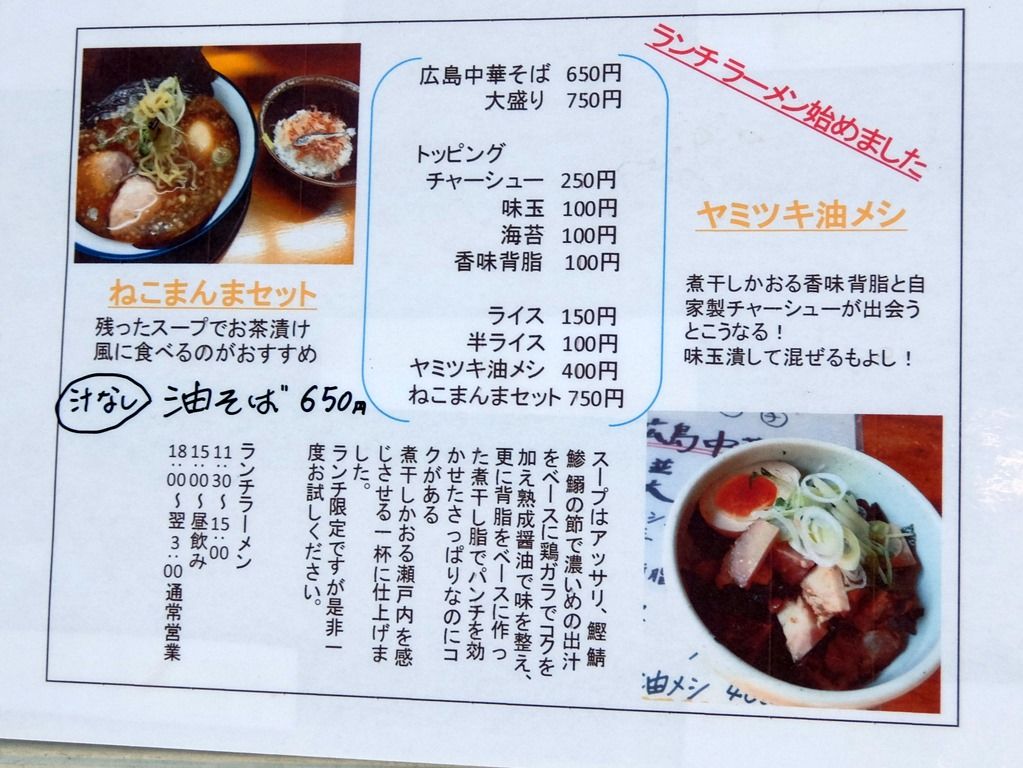 ランチラーメン始めました
広島中華そば 650円
大盛り 750円
トッピング
チャーシュー 250円
味玉 100円
海苔 100円
香味背脂 100円
ライス 150円
半ライス 100円
ヤミツキ油メシ 400円
ねこまんまセット 750円
ねこまんまセット
残ったスープでお茶漬け
風に食べるのがおすすめ
汁なし 油そば 650円
ヤミツキ油メシ
煮干しかおる香味背脂と自
家製チャーシューが出会う
とこうなる！
味玉潰して混ぜるもよし！
スープはアッサリ、鰹鯖
鯵鰯の節で濃いめの出汁
をベースに鶏ガラでコクを
加え熟成醤油で味を整え、
更に背脂をベースに作っ
た煮干し脂でパンチを効
かせたさっぱりなのにコ
クがある
煮干しかおる瀬戸内を感
じさせる一杯に仕上げま
した。
ランチ限定ですが是非一
度お試しください。
ランチラーメン
11:30～15:00
15:00～昼飲み
18:00～翌3:00通常営業
広島中華
油メシ 400